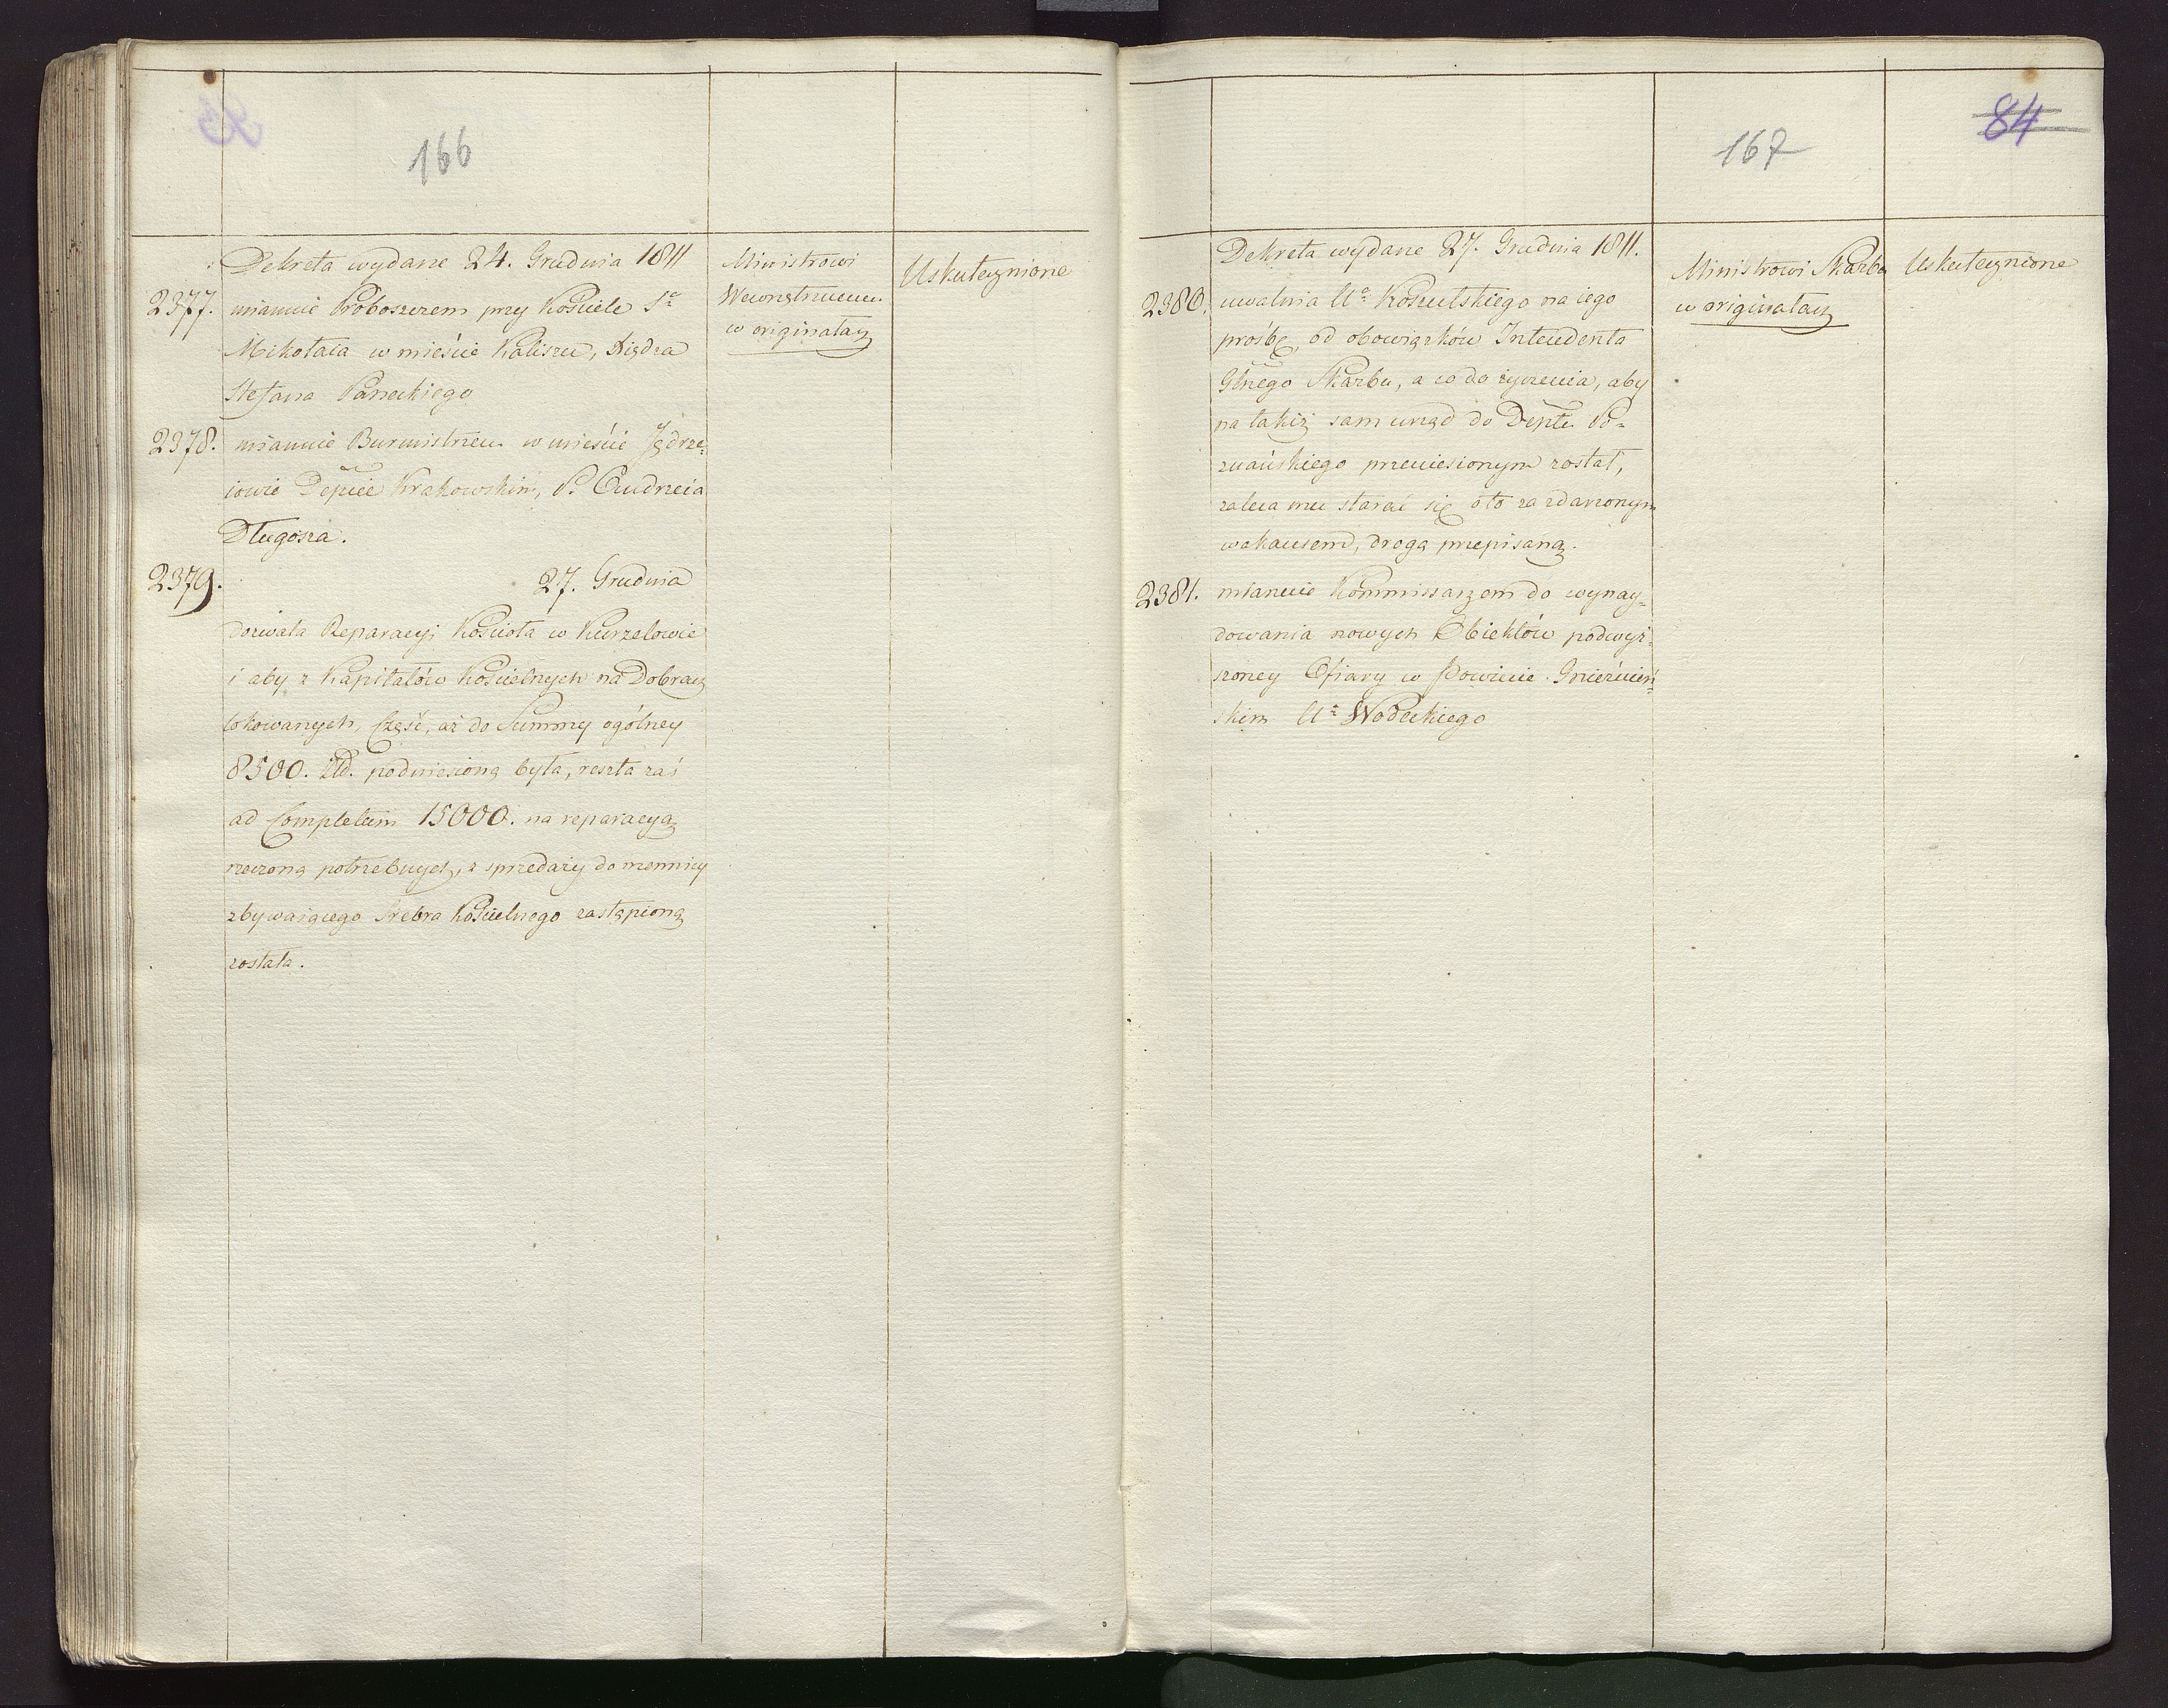 166
Dekreta wydane 24. Grudnia 1811
2377. mianuie Proboszczem przy Kościele Sº
Mikołaia w mieście Kaliszu, Xiędza
Stefana Paneckiego
2378. mianuie Burmistrzem w mieście Jędrze=
iowie Depcie Krakowskim, P. Andrzeia
Długosza.
2379. 27. Grudnia
dozwala Reparacyi Kościoła w Kurzelowie
i aby z Kapitałów Kościelnych na Dobrach
lokowanych, Część, aż do Summy ogólney
8500. Złł. podniesioną była, reszta zaś
ad Completum 15000. na reparacyą
rzeczoną potrzebnych, z sprzedaży do mennicy
zbywaiącego Srebra Kościelnego zastąpioną
została.
Ministrowi
Wewnętrznemu
w originałach
Uskutecznione
167
84
Dekreta wydane 27. Grudnia 1811.
2380. uwalnia Uº Koszutskiego na iego
prośbę, od obowiązków Intendenta
Głnego Skarbu, a co do życzenia, aby
na takiż sam urząd do Deptu Po=
znańskiego przeniesionym został,
zaleca mu starać się o to za zdarzonym
wakansem, drogą przepisaną.
2381. mianuie Kommissarzem do wynay=
dowania nowych Obiektów podwyż=
szoney Ofiary w Powiecie Gnieźnień=
skim Uº Wodeckiego
Ministrowi Skarbu
w originałach
Uskutecznione